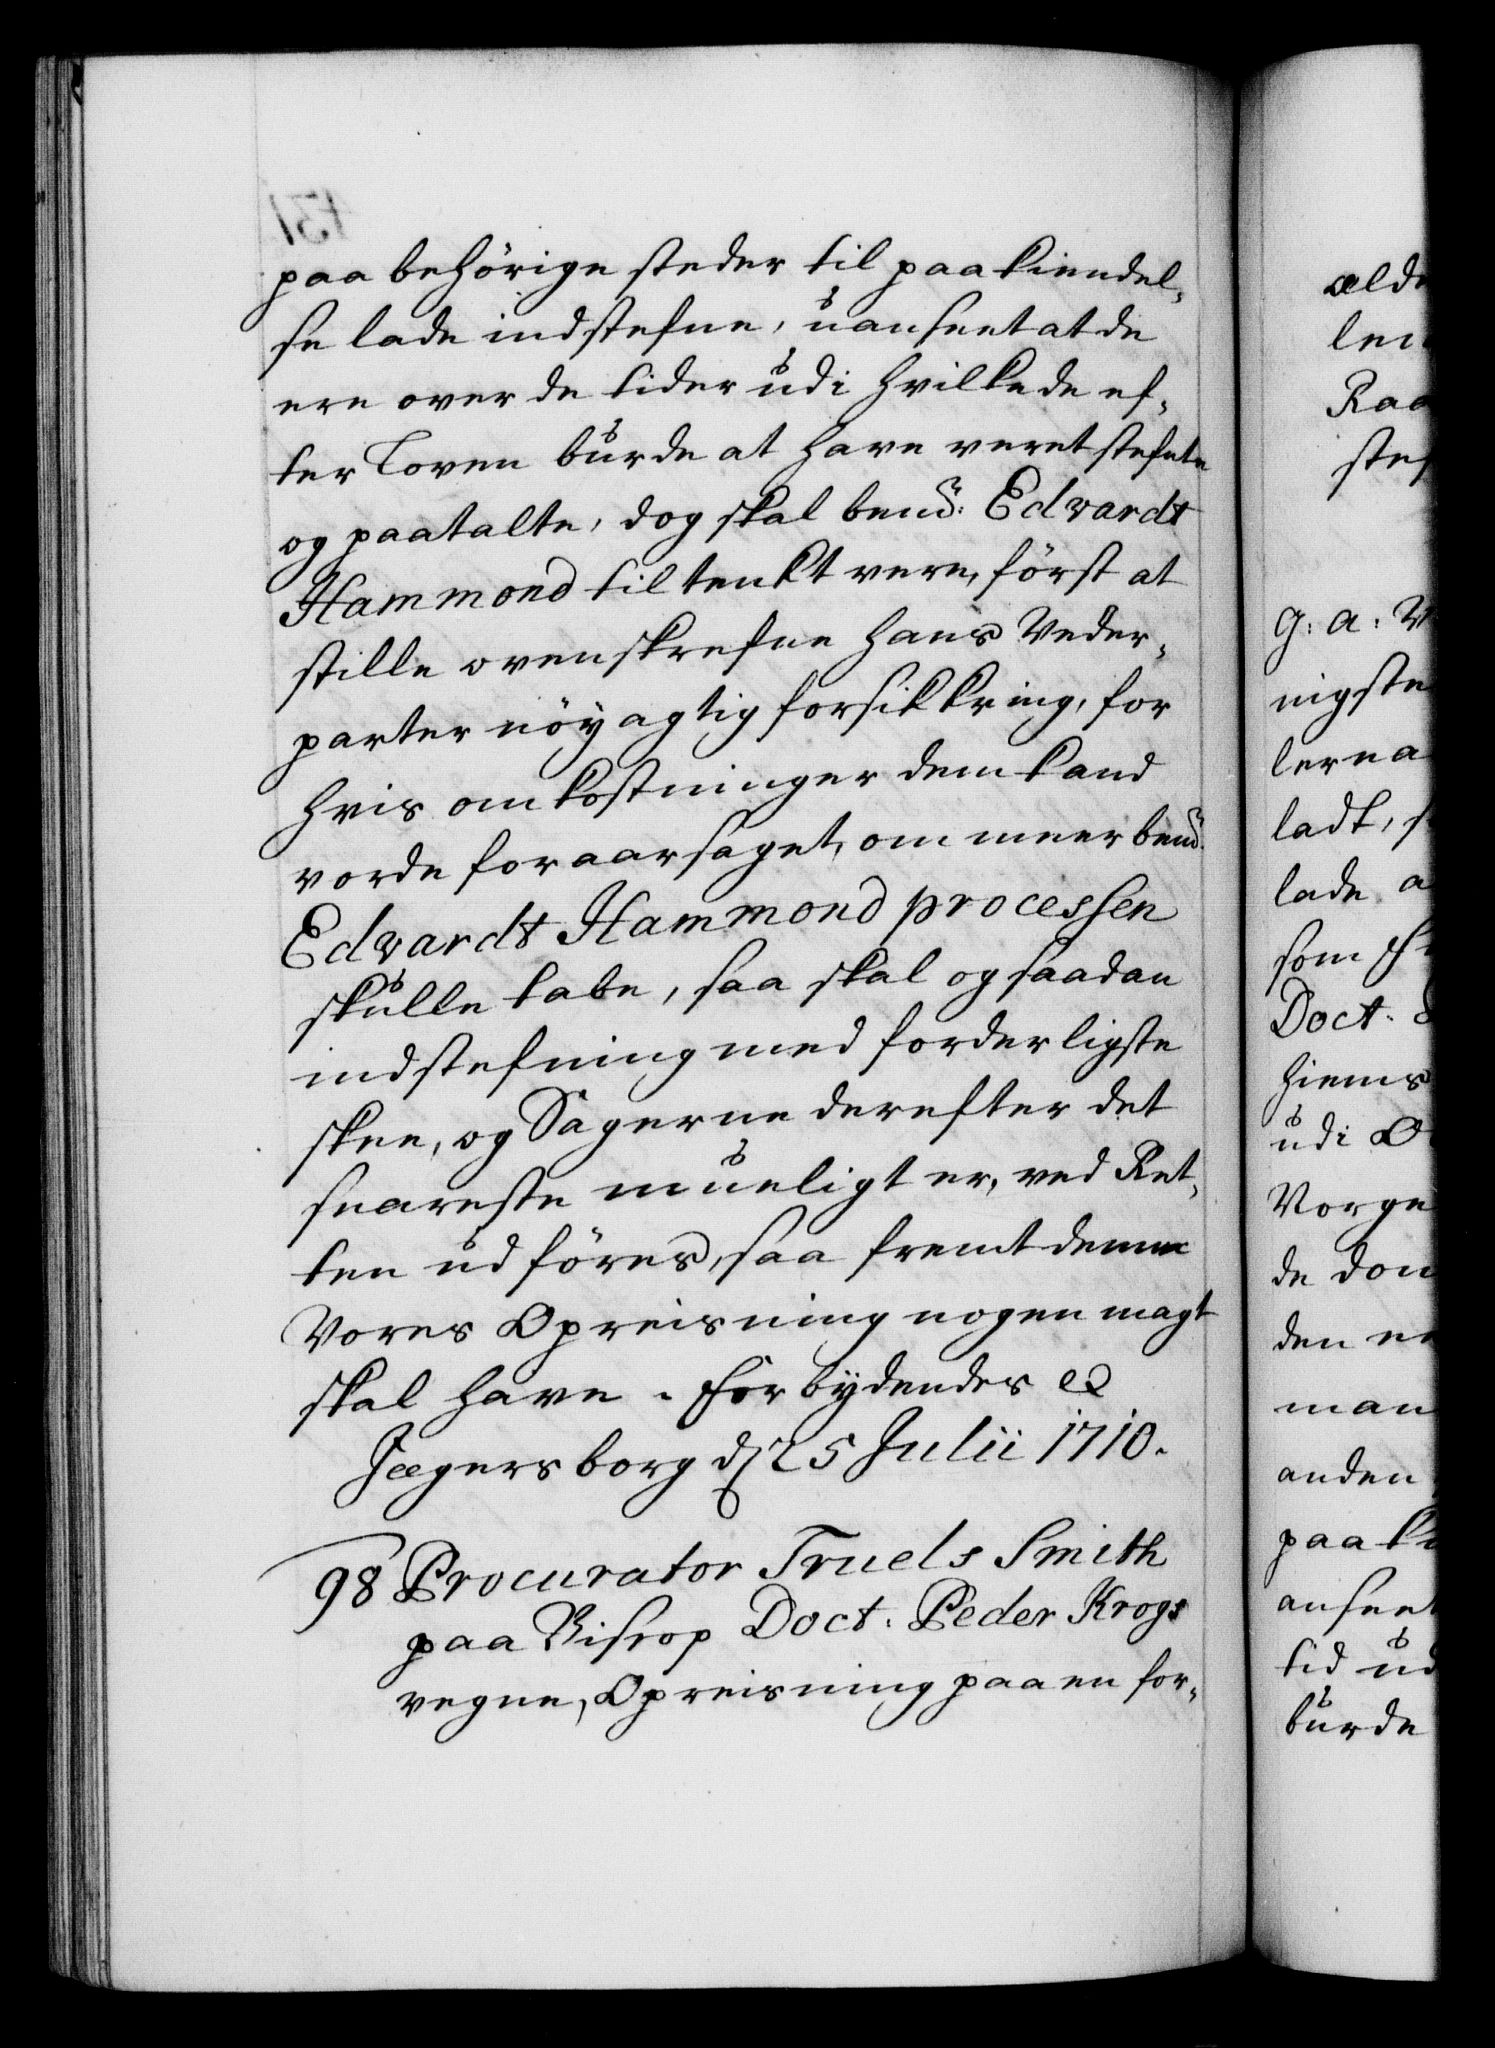 paa behörige steder til paakiendel-
se lade indstefne, uanseet at de
ere over de tider udi hvilke de ef-
ter Loven burde at have veret stefnte
og paatalte, dog skal bemd: Edvardt
Hammond tiltenkt vere, först at
stille ovenskrefne hans Veder-
parter nöyagtig forsikkring, for
hvis omkostninger dem kand
vorde foraarsaget, om meerbemd.
Edvardt Hammond processen
skulle tabe, saa skal og saadan
indstefning med forderligste
skee, og Sagerne derefter det
snareste mueligt er, ved Ret-
ten udföres, saa fremt denne
Vores Opreisning nogen magt
skal have. Forbydendes &
Jægersborg d/ 25 Julii 1710.
98 Procurator Truels Smith
paa Bisrop Doct. Peder Krogs
vegne, Opreisning paa en for-
ælde
len
Raa
stef
G: a: V
nigste
lerna
ladt, s
lade a
som
Doct.
hiems
udi O
Vorge
de dom
den
man
anden
paaki
anseet
tid ud
burde